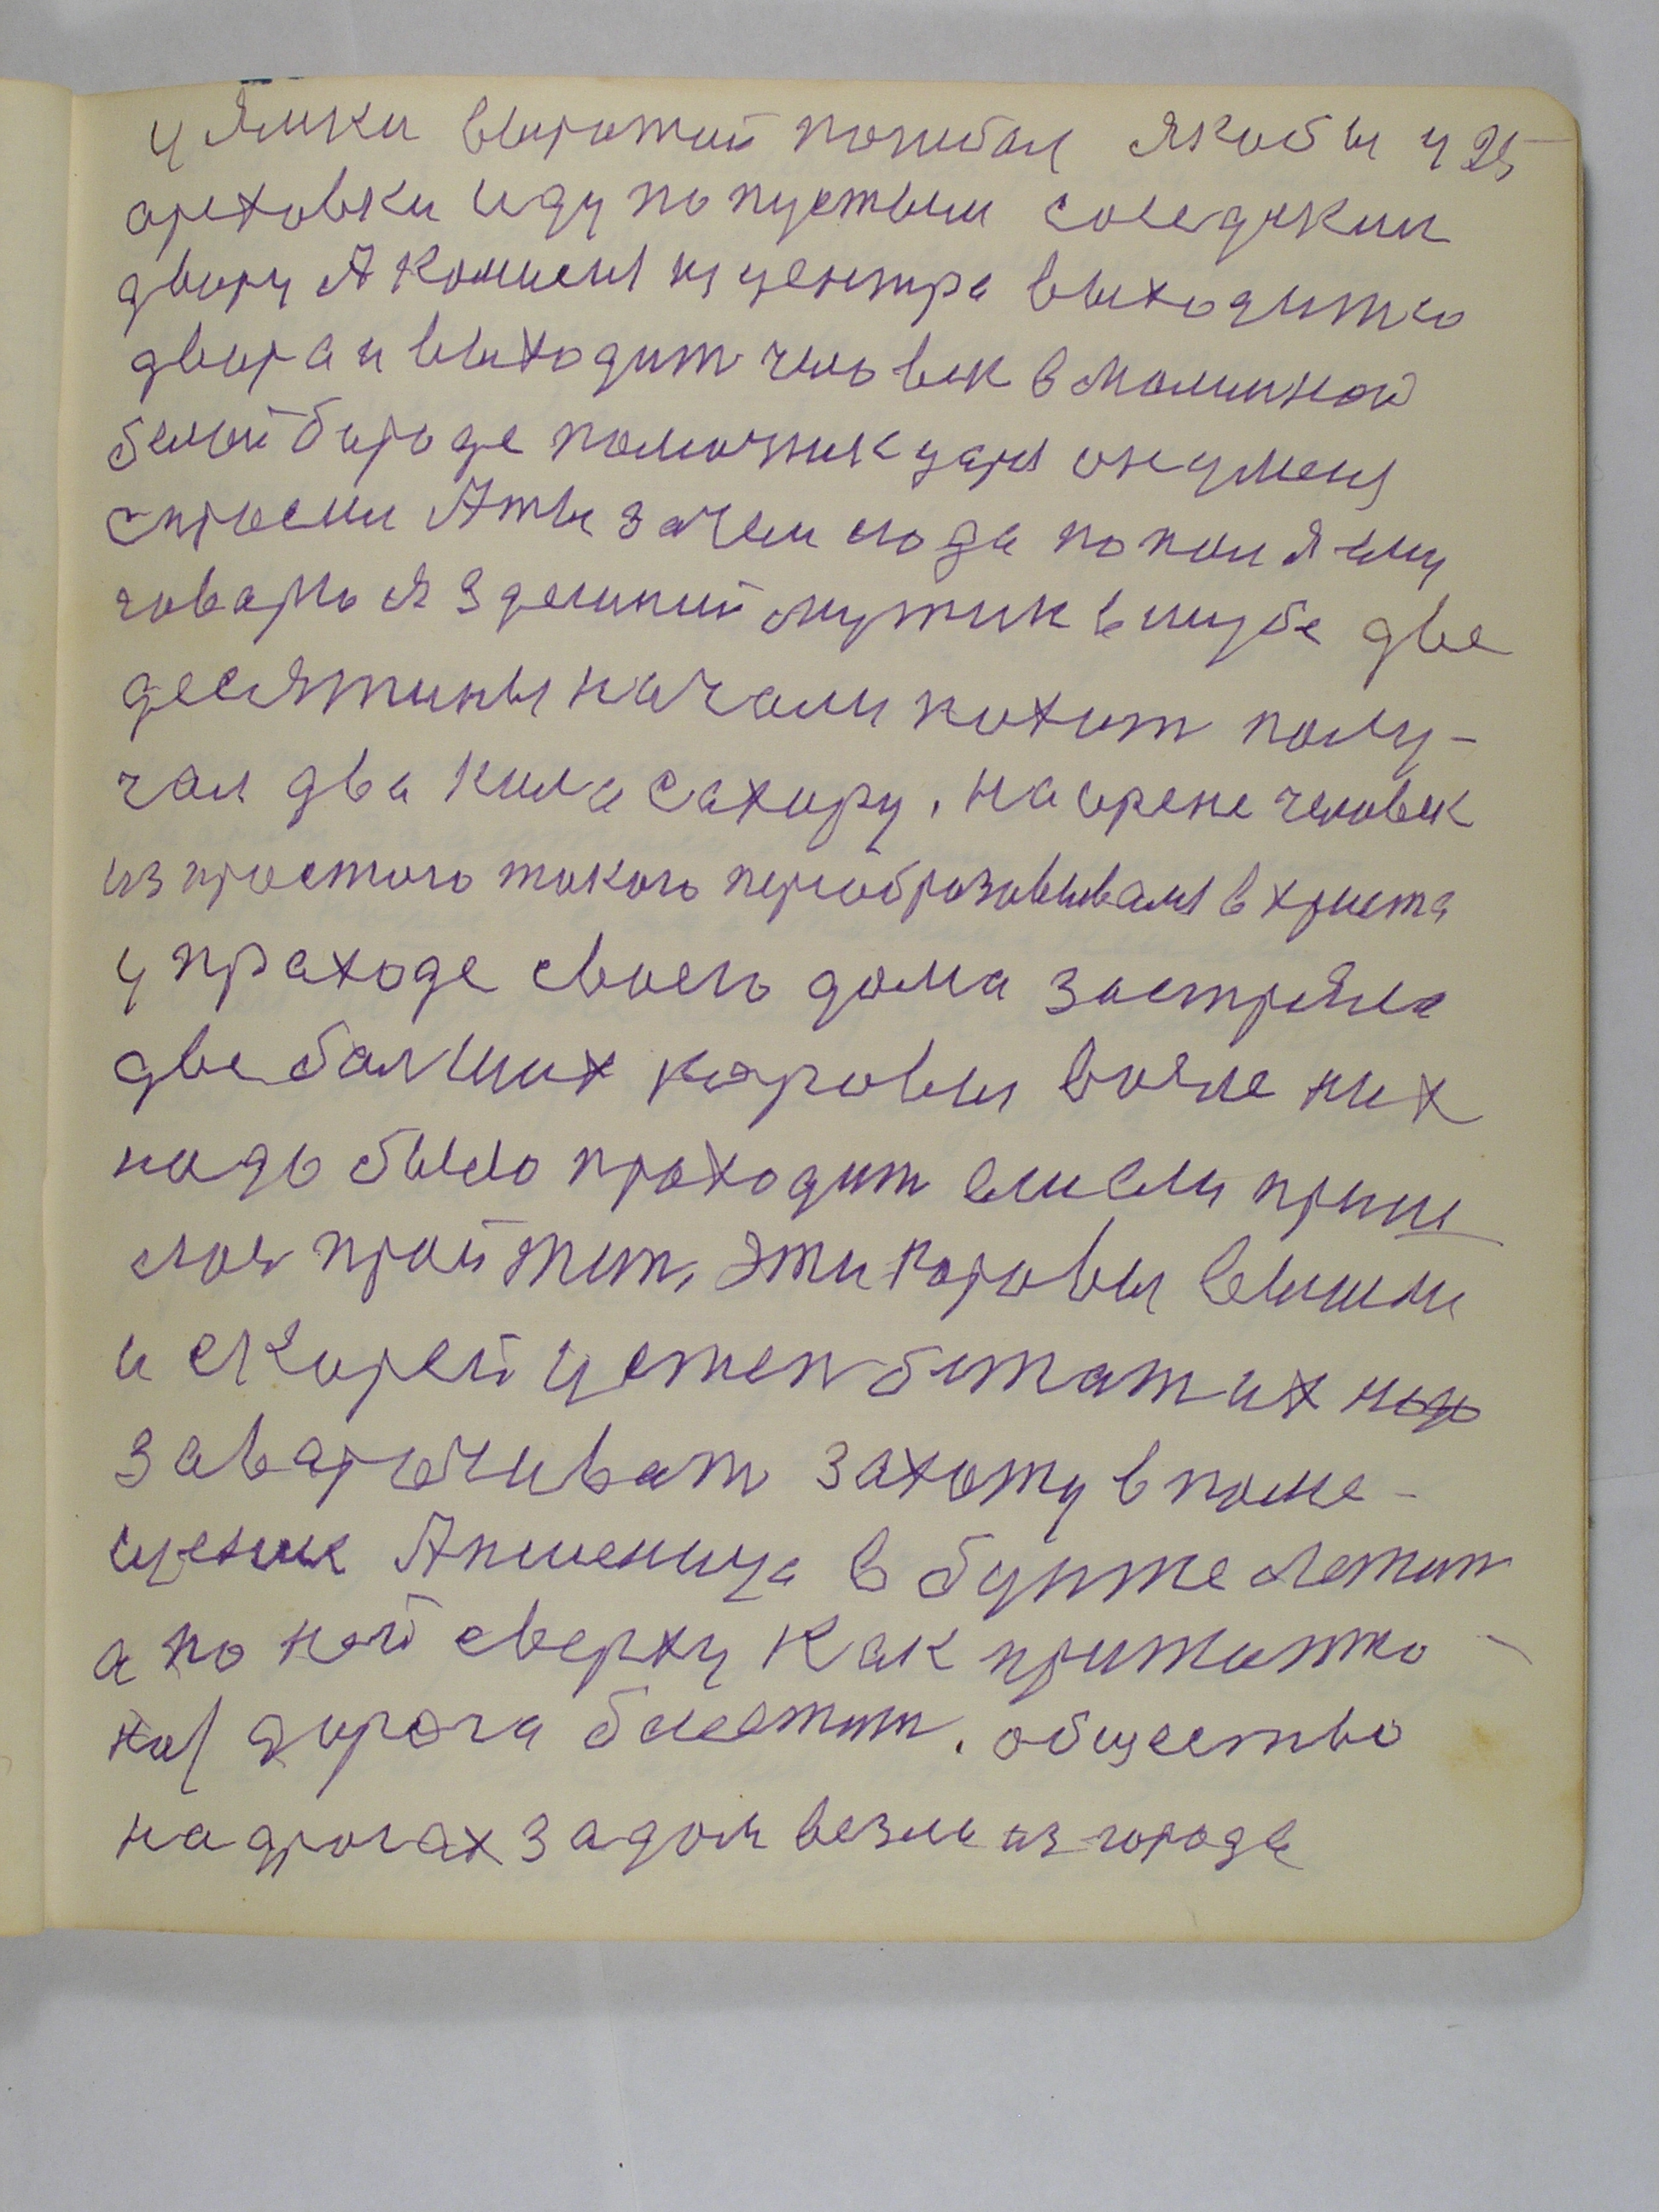 у Ямки выротий погибал якобы у 25
ореховки иду по пустым соседским
двору А комиссия из центра выходит со
двора и выходит человек в малинкой
белой бароде памочник царя он у меня
спросил А ты зачем сюда попол я ему
говарю я здешний мужик в шубе две
десятины начали пахат полу-
чал два кила сахору, на арене человек
из простого такого переобразовывался в христа
у праходе своего дома застряла
две балших каровы возле них
надо было проходит если прише
лося пройтит, эти коровы вышли
и скорей у степ бижат их
заварочивать захожу в поме-
щение А пшеница в бурте лежит
а по ней сверху как притопта-
ная дорога блестит. общество
на дрогах задом везли из города